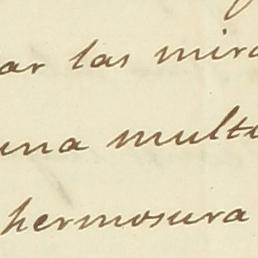 ar las mira
una multi
hermosura